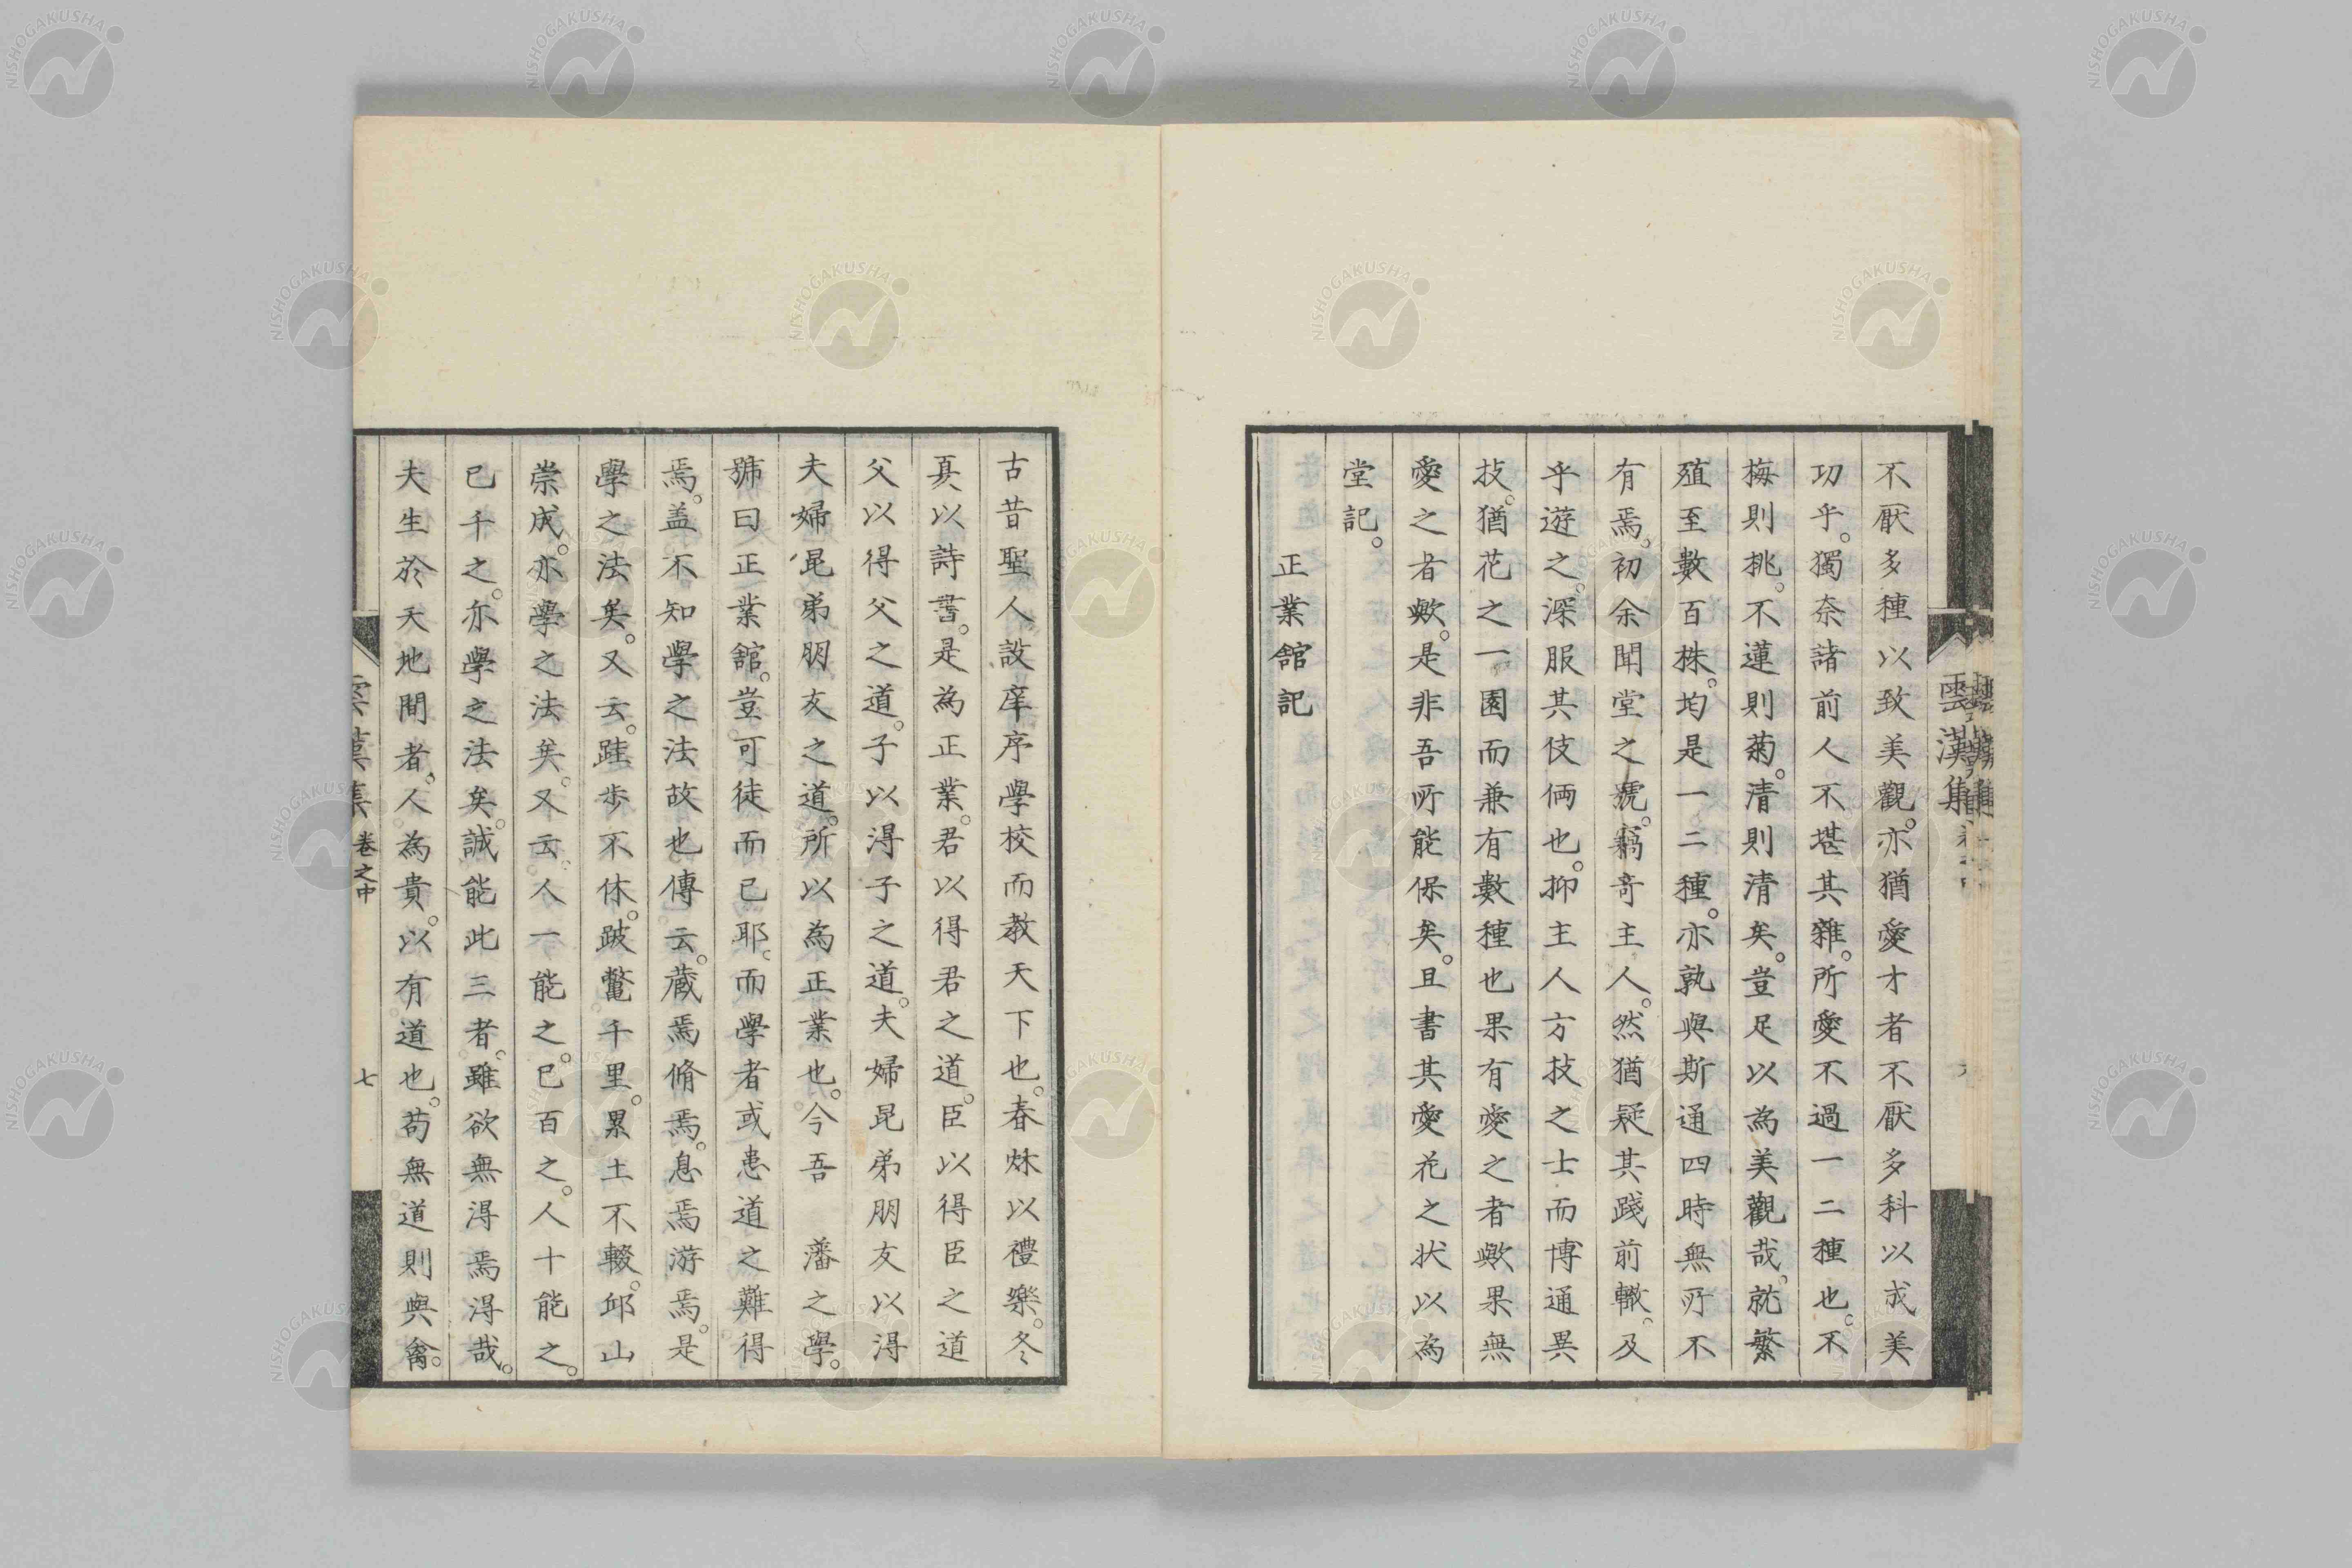 不厭多種以致美觀。亦猶愛才者不厭多科以成美
功乎。獨奈諸前人不堪其雜。所愛不過一二種也。不
梅則桃。不蓮則菊。清則清矣。豈足以為美觀哉。就繁
殖至數百株。均是一二種。亦孰與斯通四時無所不
有焉。初余聞堂之號。竊奇主人。然猶疑其踐前轍。及
乎遊之。深服其伎倆也。抑主人方技之士而博通異
技。猶花之一園而兼有數種也果有愛之者歟果無
愛之者歟。是非吾所能保矣。且書其愛花之状以為
堂記。
正業舘記
古昔聖人設庠序學校而教天下也。春秌以禮樂。冬
夏以詩書。是為正業。君以得君之道。臣以得臣之道
父以得父之道。子以得子之道。夫婦昆弟朋友以得
夫婦昆弟朋友之道。所以為正業也。今吾 藩之學。
號曰正業舘。豈可徒而已耶。而學者或患道之難得
焉。盖不知學之法故也傳云。蔵焉脩焉。息焉游焉。是
學之法矣。又云。跬歩不休。跛鼈千里。累土不輟。邱山
崇成。亦學之法矣。又云。人一能之。已百之。人十能之。
已千之。亦學之法矣。誠能此三者。雖欲無得焉得哉。
夫生於天地間者。人為貴。以有道也。苟無道則與禽。
雲漢集 卷之中 七
NISHOGAKUSHA